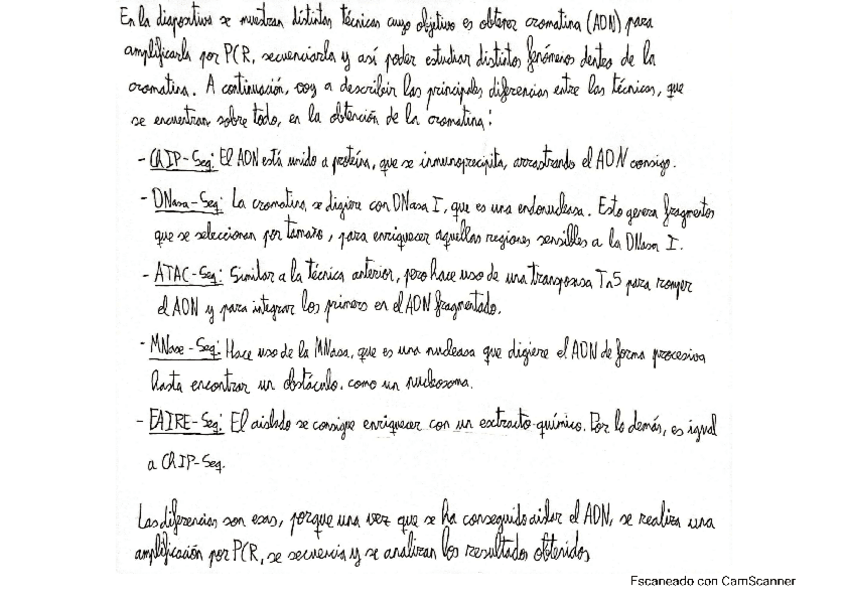 En la diapositiva se muestran distintas técnicas cuyo objetivo es obtener cromatina (ADN) para
amplificarla por PCR, secuenciarla y así poder estudiar distintos fenómenos dentro de la
cromatina. A continuación, voy a describir las principales diferencias entre las técnicas, que
se encuentran sobre todo, en la obtención de la cromatina:
- ChIP-Seq: El ADN está unido a proteína, que se inmunoprecipita, arrastrando el ADN consigo.
- DNasa-Seq: La cromatina se digiere con DNasa I, que es una endonucleasa. Esto genera fragmentos
que se seleccionan por tamaño, para enriquecer aquellas regiones sensibles a la DNasa I.
- ATAC-Seq: Similar a la técnica anterior, pero hace uso de una transposasa Tn5 para romper
el ADN y para integrar los primers en el ADN fragmentado.
- MNase-Seq: Hace uso de la MNasa, que es una nucleasa que digiere el ADN de forma procesiva
hasta encontrar un obstáculo, como un nucleosoma.
- FAIRE-Seq: El aislado se consigue enriquecer con un extracto químico. Por lo demás, es igual
a ChIP-Seq.
Las diferencias son esas, porque una vez que se ha conseguido aislar el ADN, se realiza una
amplificación por PCR, se secuencia y se analizan los resultados obtenidos
Escaneado con CamScanner